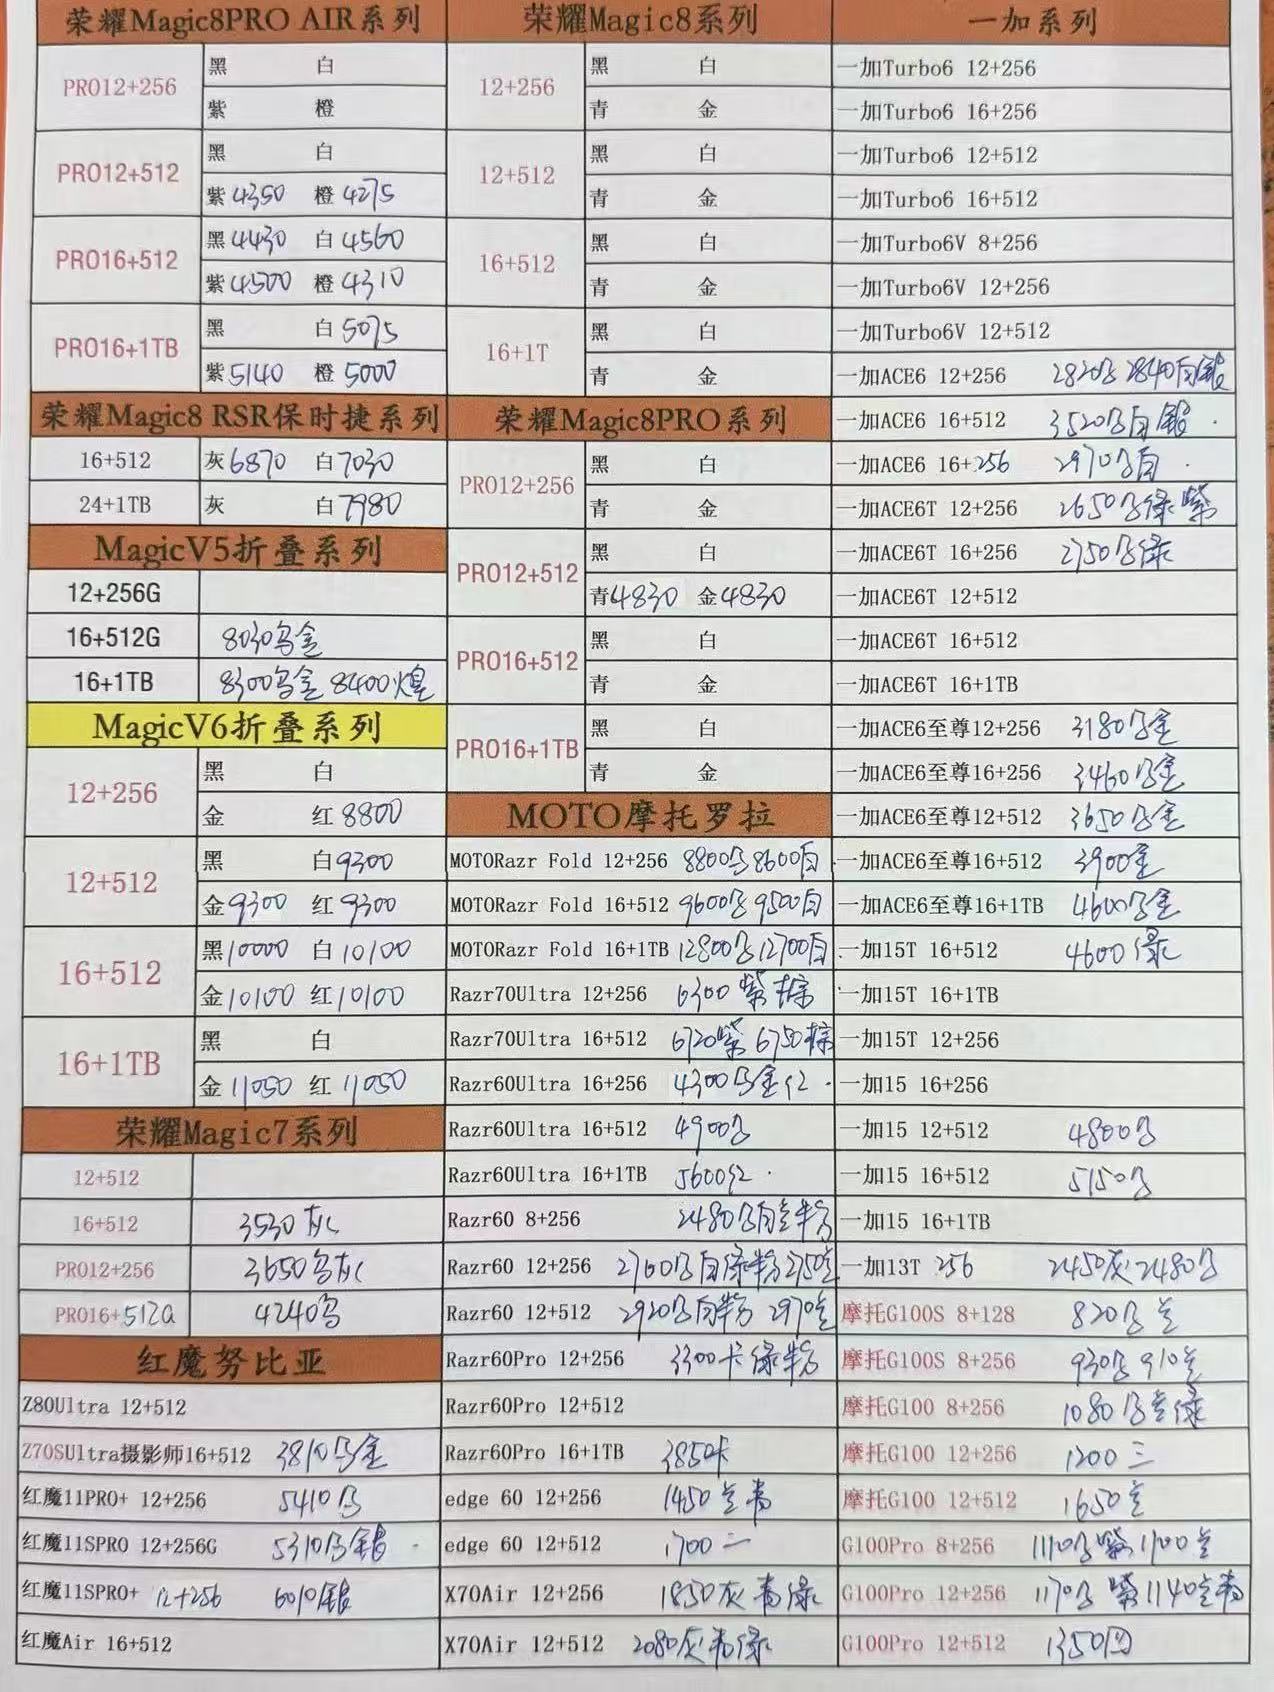 荣耀Magic8PRO AIR系列
PRO12+256 黑 白
紫 橙
PRO12+512 黑 白
紫4350 橙4275
PRO16+512 黑4430 白4560
紫4500 橙4310
PRO16+1TB 黑 白5075
紫5140 橙5000
荣耀Magic8 RSR保时捷系列
16+512 灰6870 白7030
24+1TB 灰 白7980
MagicV5折叠系列
12+256G
16+512G 8030乌金
16+1TB 8300乌金 8400煌
MagicV6折叠系列
12+256 黑 白
金 红8800
12+512 黑 白9300
金9300 红9300
16+512 黑10000 白10100
金10100 红10100
16+1TB 黑 白
金11050 红11050
荣耀Magic7系列
12+512
16+512 3530灰
PRO12+256 3650乌灰
PRO16+512G 4240乌
红魔努比亚
Z80Ultra 12+512
Z70SUltra摄影师16+512 3810乌金
红魔11PRO+ 12+256 5410乌
红魔11SPRO 12+256G 5310乌银
红魔11SPRO+ 12+256 6010银
红魔Air 16+512
荣耀Magic8系列
12+256 黑 白
青 金
12+512 黑 白
青 金
16+512 黑 白
青 金
16+1T 黑 白
青 金
荣耀Magic8PRO系列
PRO12+256 黑 白
青 金
PRO12+512 黑 白
青4830 金4830
PRO16+512 黑 白
青 金
PRO16+1TB 黑 白
青 金
MOTO摩托罗拉
MOTORazr Fold 12+256 8800乌8600白
MOTORazr Fold 16+512 9600乌9500白
MOTORazr Fold 16+1TB 12800乌12700白
Razr70Ultra 12+256 6300紫棕
Razr70Ultra 16+512 6720紫 6750棕
Razr60Ultra 16+256 4300乌金红
Razr60Ultra 16+512 4900乌
Razr60Ultra 16+1TB 5600红
Razr60 8+256 2480乌白兰粉
Razr60 12+256 2760乌白绿粉2750兰
Razr60 12+512 2920乌白粉 2970兰
Razr60Pro 12+256 3300卡绿粉
Razr60Pro 12+512
Razr60Pro 16+1TB 3850卡
edge 60 12+256 1450兰青
edge 60 12+512 1700二
X70Air 12+256 1850灰青绿
X70Air 12+512 2080灰青绿
一加系列
一加Turbo6 12+256
一加Turbo6 16+256
一加Turbo6 12+512
一加Turbo6 16+512
一加Turbo6V 8+256
一加Turbo6V 12+256
一加Turbo6V 12+512
一加ACE6 12+256 2820乌 2840白银
一加ACE6 16+512 3520乌白银
一加ACE6 16+256 2970乌白
一加ACE6T 12+256 2650乌绿紫
一加ACE6T 16+256 2750乌绿
一加ACE6T 12+512
一加ACE6T 16+512
一加ACE6T 16+1TB
一加ACE6至尊12+256 3180乌金
一加ACE6至尊16+256 3460乌金
一加ACE6至尊12+512 3650乌金
一加ACE6至尊16+512 3900金
一加ACE6至尊16+1TB 4600乌金
一加15T 16+512 4600绿
一加15T 16+1TB
一加15T 12+256
一加15 16+256
一加15 12+512 4800乌
一加15 16+512 5150乌
一加15 16+1TB
一加13T 256 2450灰2480乌
摩托G100S 8+128 820乌兰
摩托G100S 8+256 930乌 910兰
摩托G100 8+256 1080乌兰绿
摩托G100 12+256 1200三
摩托G100 12+512 1650兰
G100Pro 8+256 1110乌紫1100兰
G100Pro 12+256 1170乌紫1140兰青
G100Pro 12+512 1350四